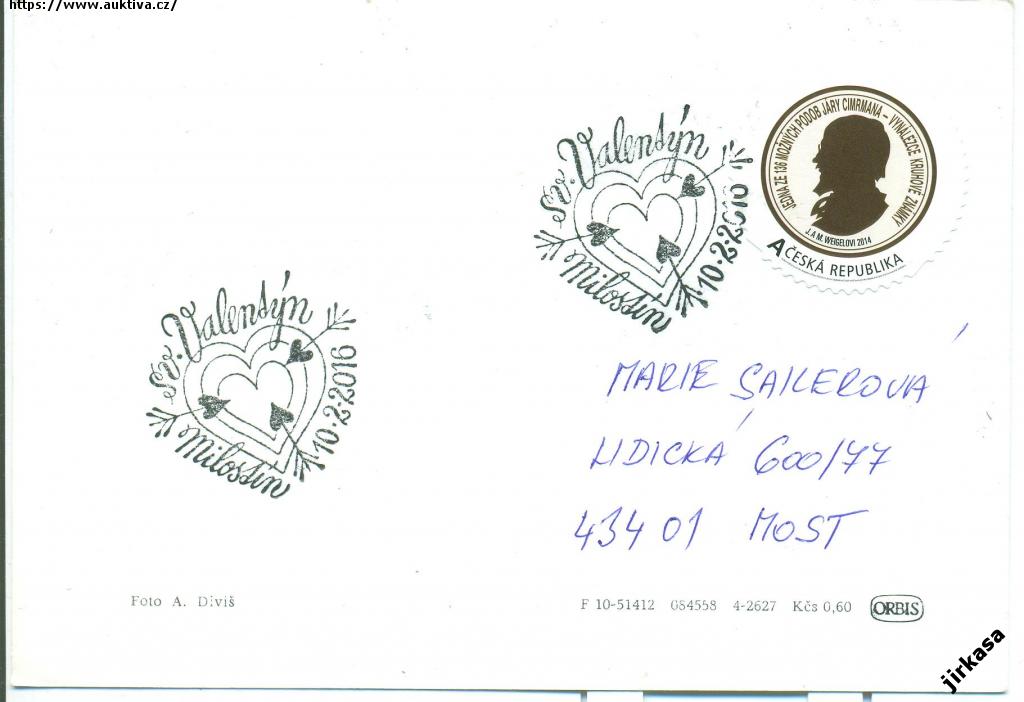 https://www.auktiva.cz/
JEDNA ZE 136 MOŽNÝCH PODOB JÁRY CIMRMANA – VYNÁLEZCE KRUHOVÉ ZNÁMKY
J. A M. WEIGELOVI 2014
A ČESKÁ REPUBLIKA
Sv. Valentýn
10.2.2016
Milostín
Sv. Valentýn
10.2.2016
Milostín
MARIE SAILEROVÁ
LIDICKÁ 600/77
434 01 MOST
Foto A. Diviš
F 10-51412 084558 4-2627 Kčs 0,60 ORBIS
jirkasa